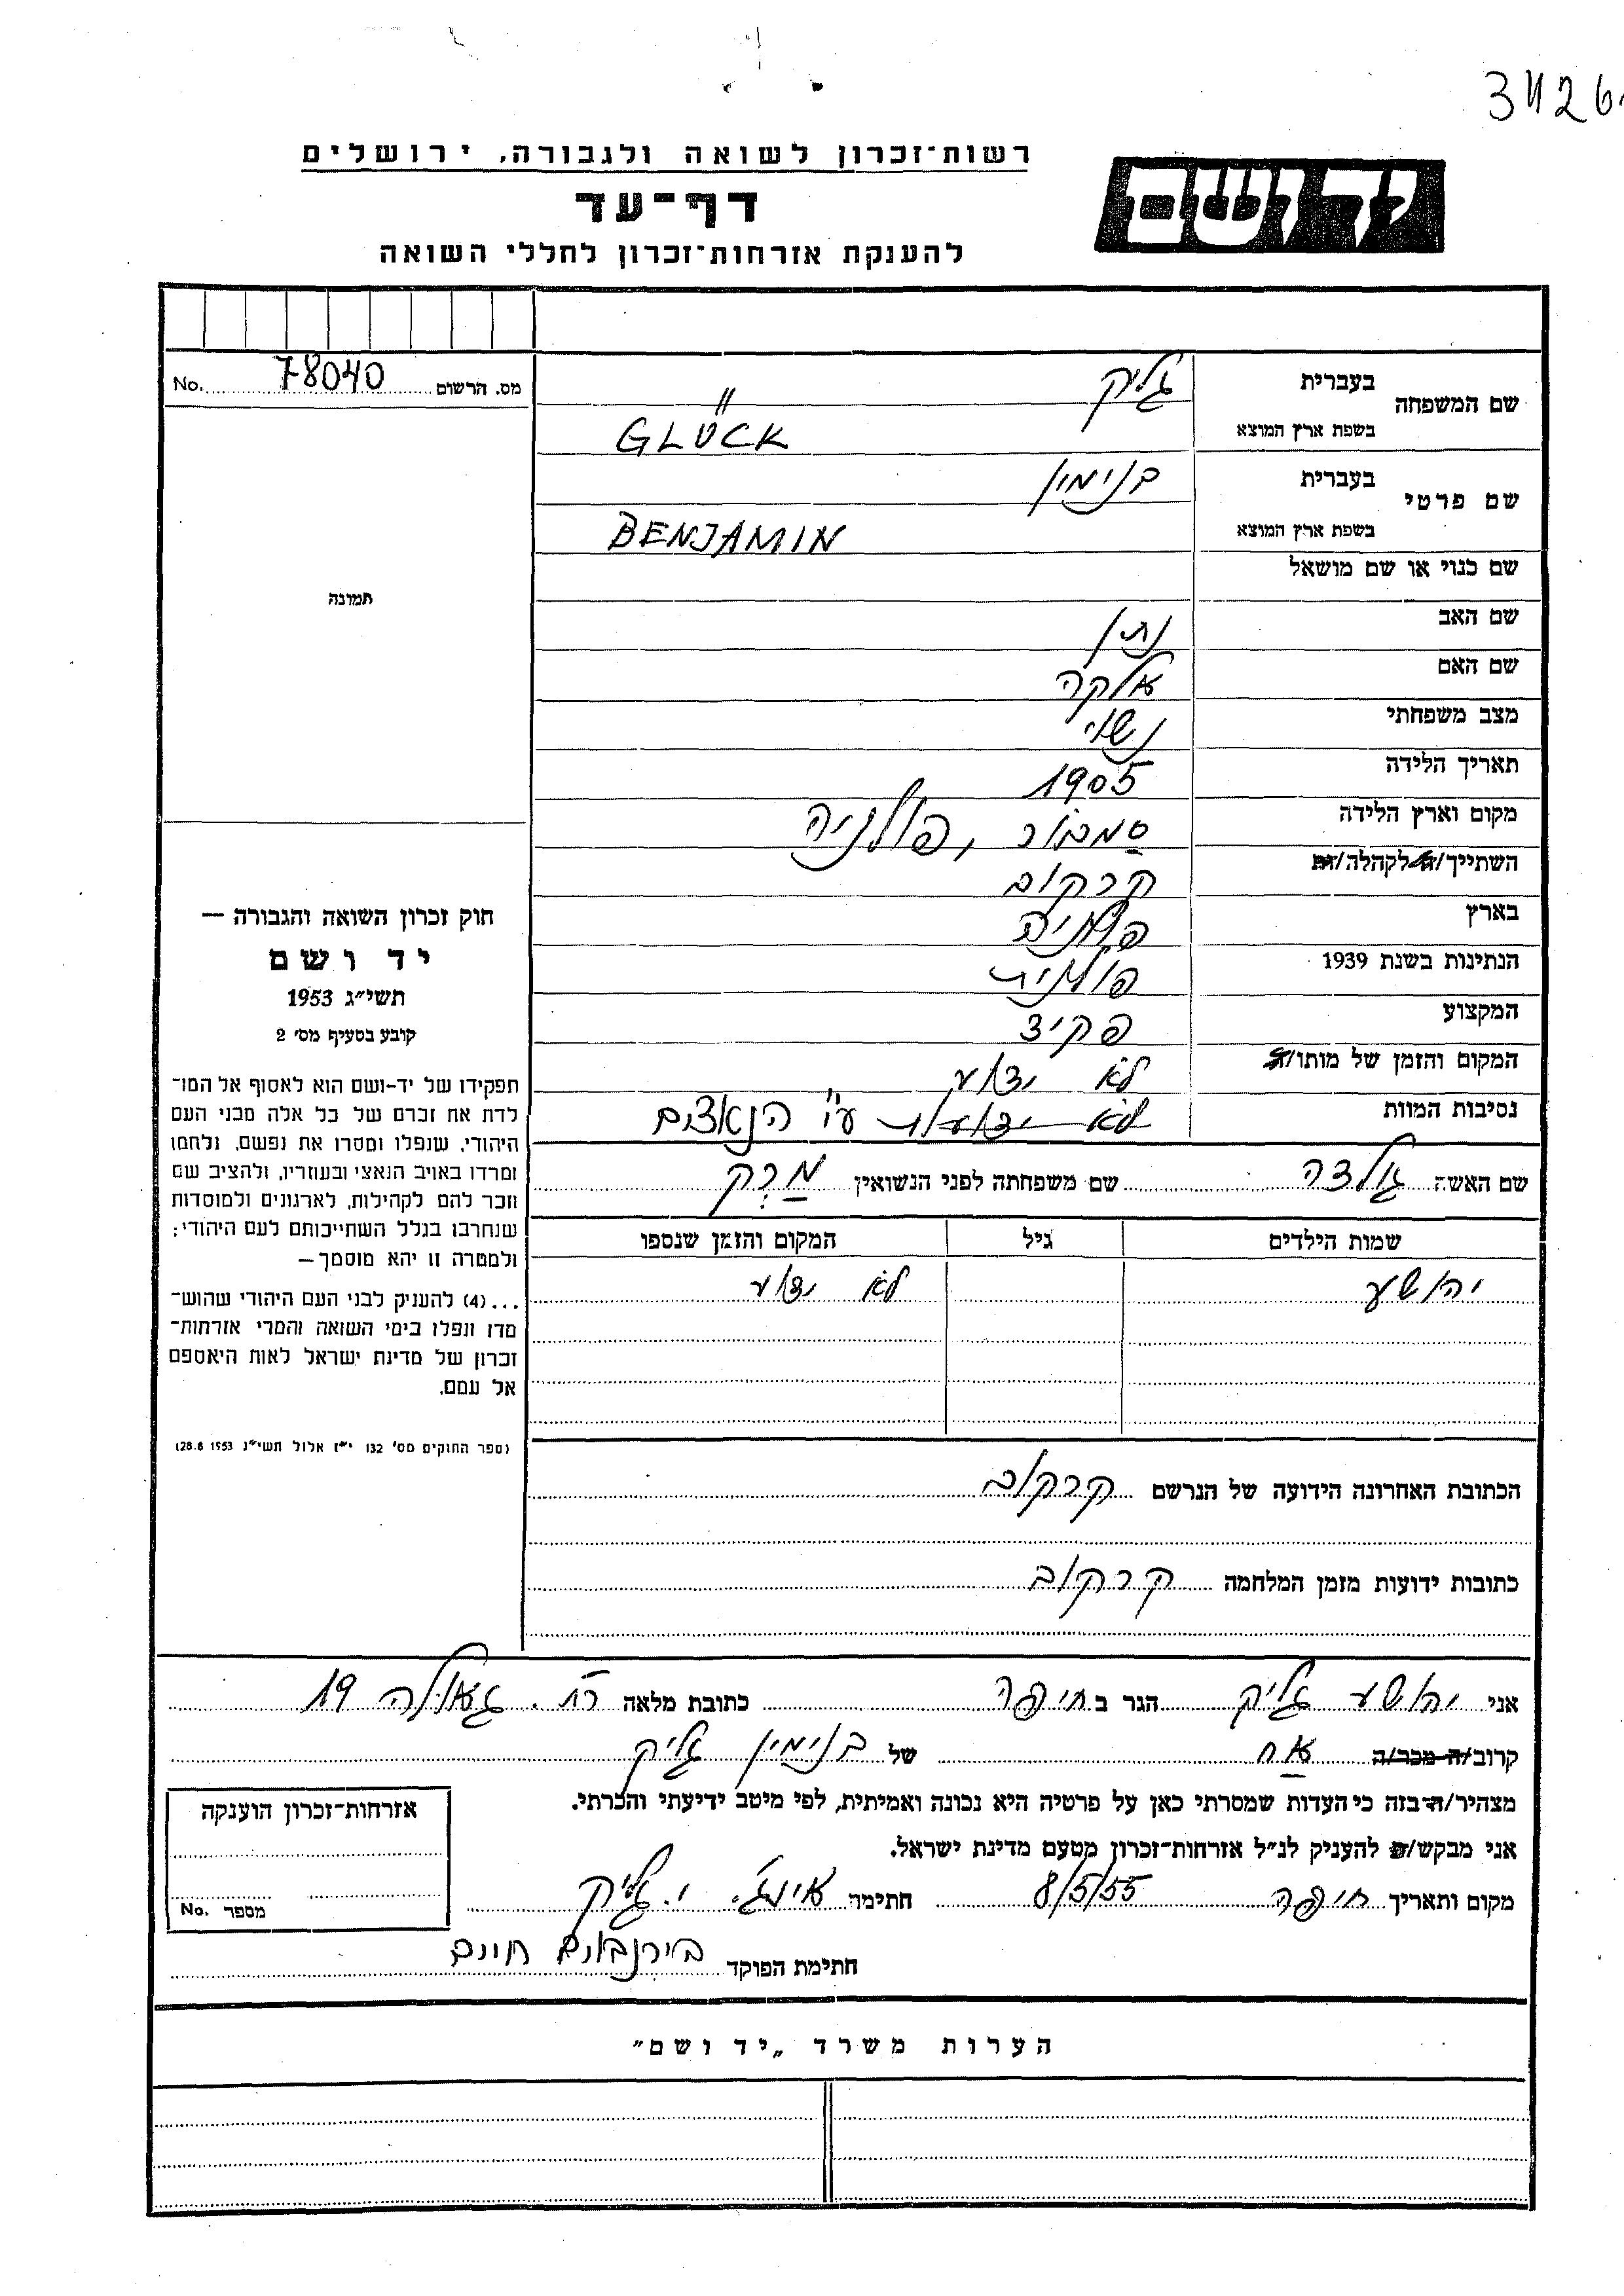 3426
ידושם
רשות־זכרון לשואה ולגבורה, ירושלים
דף־עד
להענקת אזרחות־זכרון לחללי השואה
מס. הרשום 78040 No.
שם המשפחה
בעברית גליק
בשפת ארץ המוצא GLÜCK
שם פרטי
בעברית בנימין
בשפת ארץ המוצא BENJAMIN
שם כנוי או שם מושאל
שם האב נתן
שם האם אלקה
מצב משפחתי נשוי
תאריך הלידה 1905
מקום וארץ הלידה סמבור, פולניה
השתייך/ה לקהלה/ת קרקוב
בארץ פולניה
הנתינות בשנת 1939 פולנית
המקצוע פקיד
המקום והזמן של מותו/ה לא ידוע
נסיבות המוות לא ידועות ע״י הנאצים
שם האשה גולדה שם משפחתה לפני הנשואין מרק
שמות הילדים גיל המקום והזמן שנספו
יהושע לא ידוע
הכתובת האחרונה הידועה של הנרשם קרקוב
כתובות ידועות מזמן המלחמה קרקוב
תמונה
חוק זכרון השואה והגבורה —
יד ושם
תשי״ג 1953
קובע בסעיף מס׳ 2
תפקידו של יד-ושם הוא לאסוף אל המו־
לדת את זכרם של כל אלה מבני העם
היהודי, שנפלו ומסרו את נפשם, נלחמו
ומרדו באויב הנאצי ובעוזריו, ולהציב שם
וזכר להם לקהילות, לארגונים ולמוסדות
שנחרבו בגלל השתייכותם לעם היהודי;
ולמטרה זו יהא מוסמך—
...(4) להעניק לבני העם היהודי שהוש־
מדו ונפלו בימי השואה והמרי אזרחות־
זכרון של מדינת ישראל לאות היאספם
אל עמם.
(ספר החוקים מס׳ 132 י״ז אלול תשי״ג 28.8.1953)
אני יהושע גליק הגר ב חיפה כתובת מלאה רח. גאולה 19
קרוב/ה מכר/ה אח של בנימין גליק
מצהיר/ה בזה כי העדות שמסרתי כאן על פרטיה היא נכונה ואמיתית, לפי מיטב ידיעתי והכרתי.
אני מבקש/ת להעניק לנ״ל אזרחות־זכרון מטעם מדינת ישראל.
מקום ותאריך חיפה 8/5/55 חתימה אינג׳. י. גליק
חתימת הפוקד בירנבוים חיים
אזרחות־זכרון הוענקה
מספר No.
הערות משרד „יד ושם״